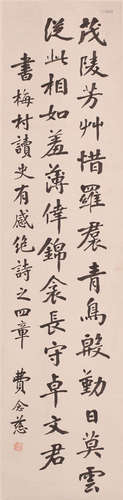 茂陵芳艸惜羅裠青鳥殷勤日莫雲
從此相如羞薄倖錦衾長守卓文君
書梅村讀史有感絕詩之四章 費念慈